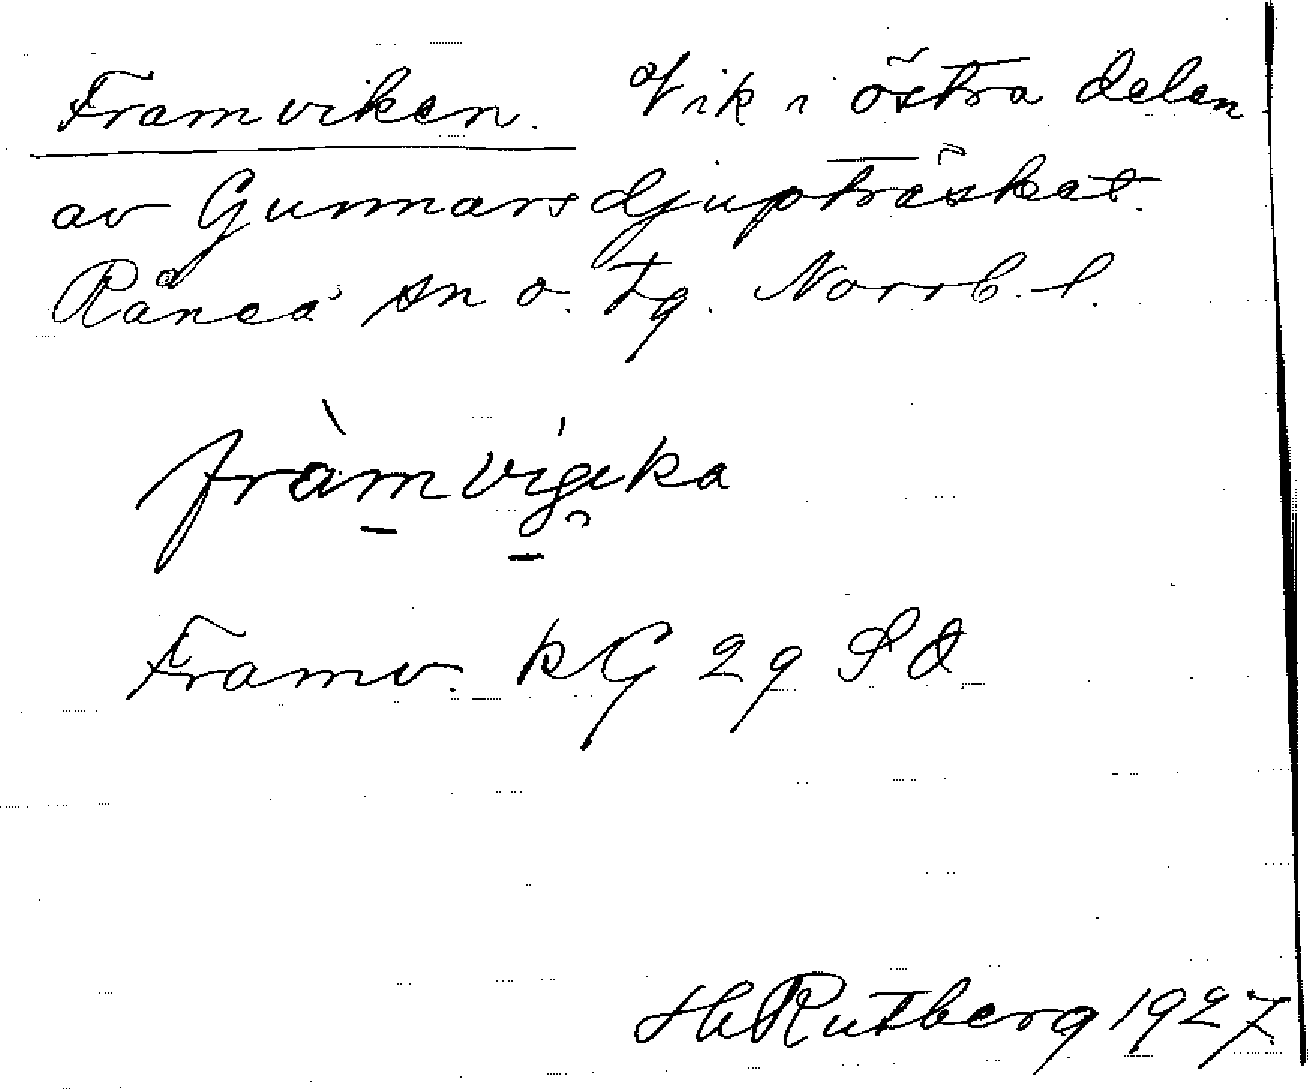 Framviken. Vik i östra delen
av Gunnarsdjupträsket.
Råneå sn o. tg. Norrb. l.
fràmvigika
Framv. KG 29 SO
H Rutberg 1927